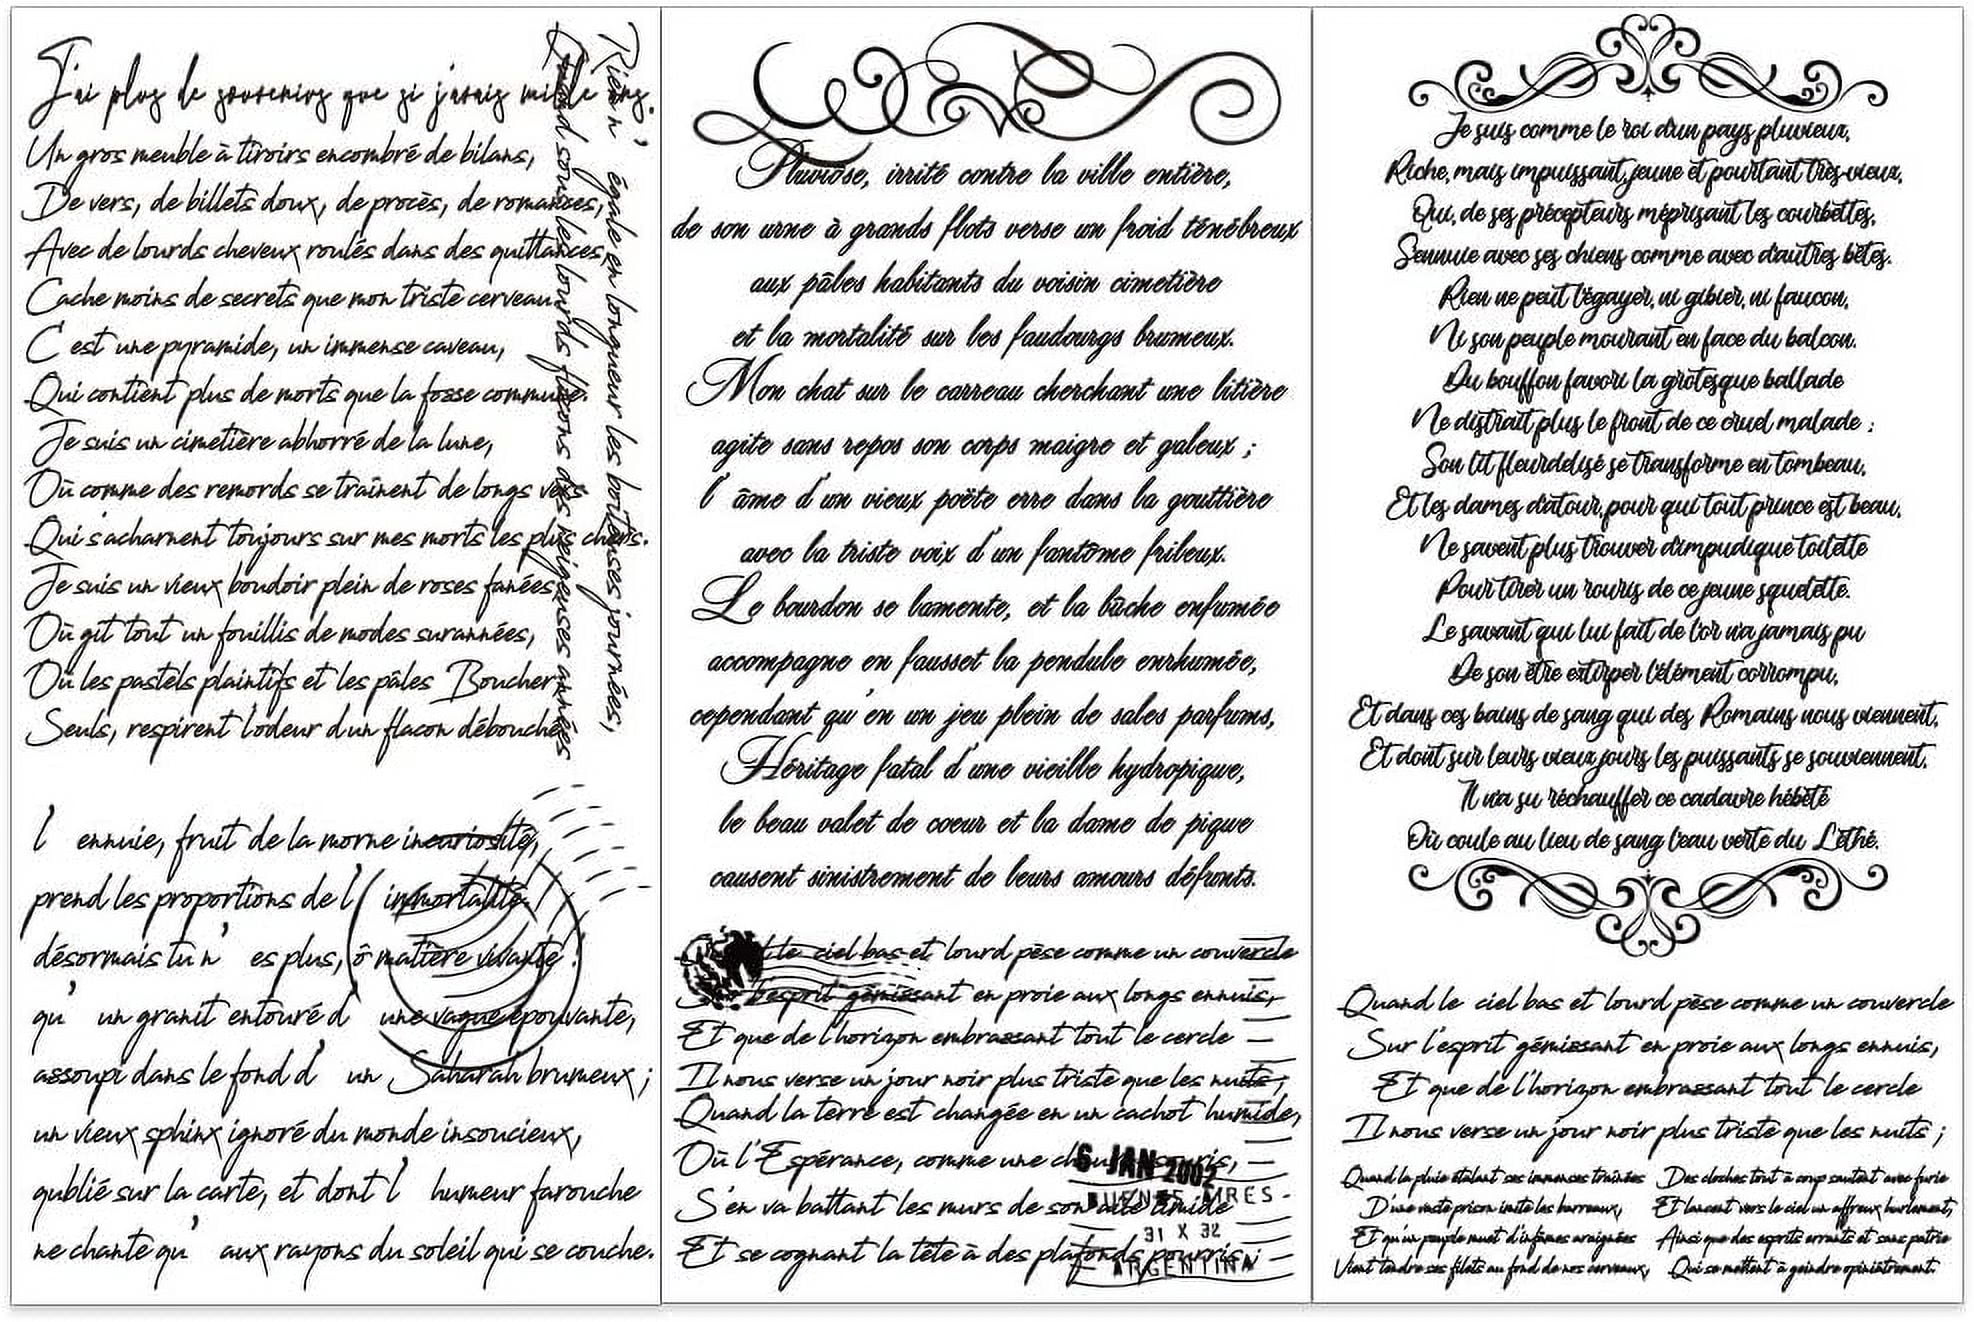 J'ai plus de souvenirs que si j'avais mille ans.
Un gros meuble à tiroirs encombré de bilans,
De vers, de billets doux, de procès, de romances,
Avec de lourds cheveux roulés dans des quittances,
Cache moins de secrets que mon triste cerveau.
C est une pyramide, un immense caveau,
Qui contient plus de morts que la fosse commune.
Je suis un cimetière abhorré de la lune,
Où comme des remords se traînent de longs vers
Qui s'acharnent toujours sur mes morts les plus chers.
Je suis un vieux boudoir plein de roses fanées,
Où gît tout un fouillis de modes surannées,
Où les pastels plaintifs et les pâles Boucher,
Seuls, respirent l'odeur d'un flacon débouché.
Rien n' égale en longueur les boiteuses journées,
Quand sous les lourds flocons des neigeuses années
l' ennuie, fruit de la morne incuriosité,
prend les proportions de l' immortalité.
désormais tu n' es plus, ô matière vivante !
qu' un granit entouré d' une vague épouvante,
assoupi dans le fond d' un Saharah brumeux ;
un vieux sphinx ignoré du monde insoucieux,
oublié sur la carte, et dont l' humeur farouche
ne chante qu' aux rayons du soleil qui se couche.
Pluviôse, irrité contre la ville entière,
de son urne à grands flots verse un froid ténébreux
aux pâles habitants du voisin cimetière
et la mortalité sur les faudourgs brumeux.
Mon chat sur le carreau cherchant une litière
agite sans repos son corps maigre et galeux ;
l' âme d'un vieux poëte erre dans la gouttière
avec la triste voix d'un fantôme frileux.
Le bourdon se lamente, et la bûche enfumée
accompagne en fausset la pendule enrhumée,
cependant qu'en un jeu plein de sales parfums,
Héritage fatal d'une vieille hydropique,
le beau valet de coeur et la dame de pique
causent sinistrement de leurs amours défunts.
le ciel bas et lourd pèse comme un couvercle
l'esprit gémissant en proie aux longs ennuis,
Et que de l'horizon embrassant tout le cercle
Il nous verse un jour noir plus triste que les nuits ;
Quand la terre est changée en un cachot humide,
Où l'Espérance, comme une chauve-souris,
S'en va battant les murs de son aile timide
Et se cognant la tête à des plafonds pourris ;
6 JAN 2002
BUENOS AIRES
31 X 32
ARGENTINA
Je suis comme le roi d'un pays pluvieux,
Riche, mais impuissant, jeune et pourtant très-vieux,
Qui, de ses précepteurs méprisant les courbettes,
S'ennuie avec ses chiens comme avec d'autres bêtes.
Rien ne peut l'égayer, ni gibier, ni faucon,
Ni son peuple mourant en face du balcon.
Du bouffon favori la grotesque ballade
Ne distrait plus le front de ce cruel malade ;
Son lit fleurdelisé se transforme en tombeau,
Et les dames d'atour, pour qui tout prince est beau,
Ne savent plus trouver d'impudique toilette
Pour tirer un souris de ce jeune squelette.
Le savant qui lui fait de l'or n'a jamais pu
De son être extirper l'élément corrompu,
Et dans ces bains de sang qui des Romains nous viennent,
Et dont sur leurs vieux jours les puissants se souviennent,
Il n'a su réchauffer ce cadavre hébété
Où coule au lieu de sang l'eau verte du Léthé.
Quand le ciel bas et lourd pèse comme un couvercle
Sur l'esprit gémissant en proie aux longs ennuis,
Et que de l'horizon embrassant tout le cercle
Il nous verse un jour noir plus triste que les nuits ;
Quand la pluie étalant ses immenses traînées
D'une vaste prison imite les barreaux,
Et qu'un peuple muet d'infâmes araignées
Vient tendre ses filets au fond de nos cerveaux,
Des cloches tout à coup sautent avec furie
Et lancent vers le ciel un affreux hurlement,
Ainsi que des esprits errants et sans patrie
Qui se mettent à geindre opiniâtrement.